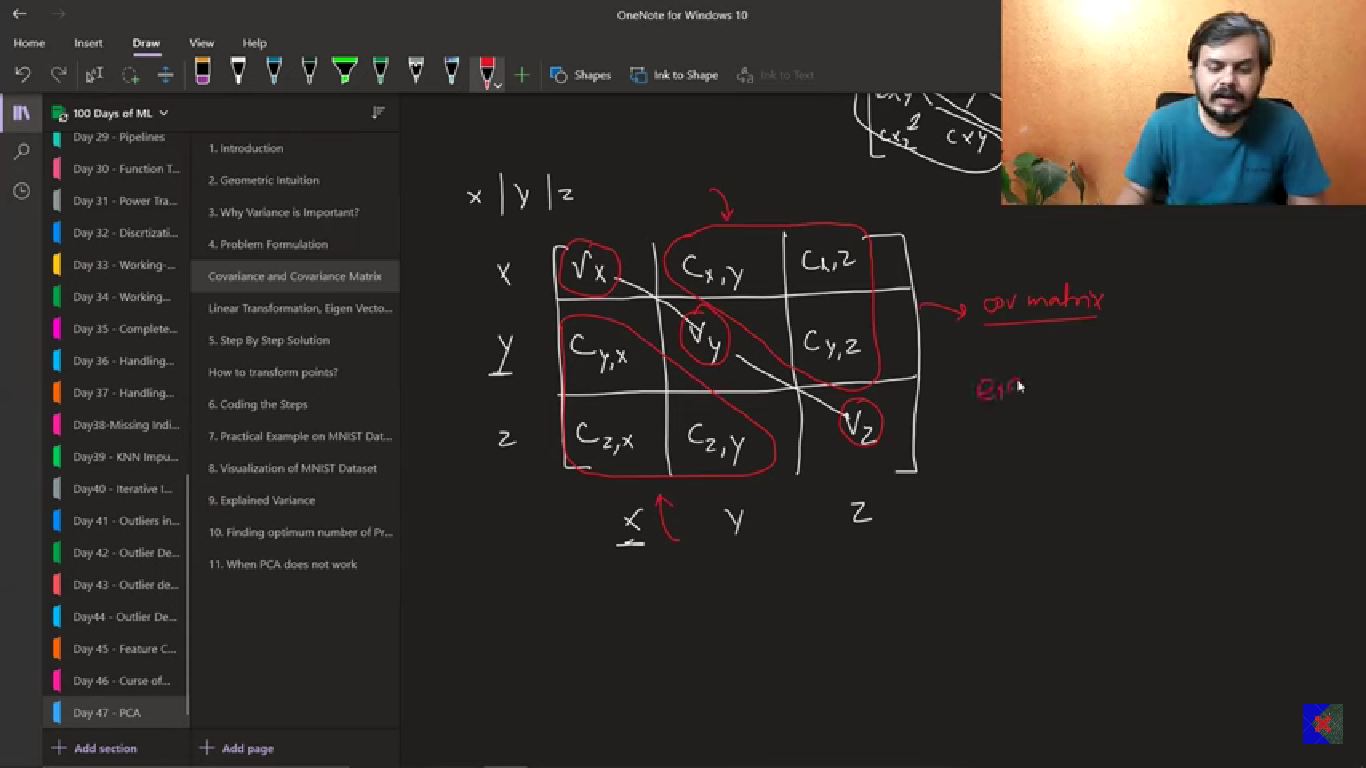 OneNote for Windows 10
Home Insert Draw View Help
Shapes Ink to Shape Ink to Text
100 Days of ML
Day 29 - Pipelines
Day 30 - Function T...
Day 31 - Power Tra...
Day 32 - Discrtizati...
Day 33 - Working-...
Day 34 - Working...
Day 35 - Complete...
Day 36 - Handling...
Day 37 - Handling...
Day38-Missing Indi...
Day39 - KNN Impu...
Day40 - Iterative I...
Day 41 - Outliers in...
Day 42 - Outlier De...
Day 43 - Outlier de...
Day44 - Outlier De...
Day 45 - Feature C...
Day 46 - Curse of...
Day 47 - PCA
Add section
1. Introduction
2. Geometric Intuition
3. Why Variance is Important?
4. Problem Formulation
Covariance and Covariance Matrix
Linear Transformation, Eigen Vecto...
5. Step By Step Solution
How to transform points?
6. Coding the Steps
7. Practical Example on MNIST Dat...
8. Visualization of MNIST Dataset
9. Explained Variance
10. Finding optimum number of Pr...
11. When PCA does not work
Add page
x | y | z
x Vx Cx,y Cx,z
y Cy,x Vy Cy,z
z Cz,x Cz,y Vz
x y z
cov matrix